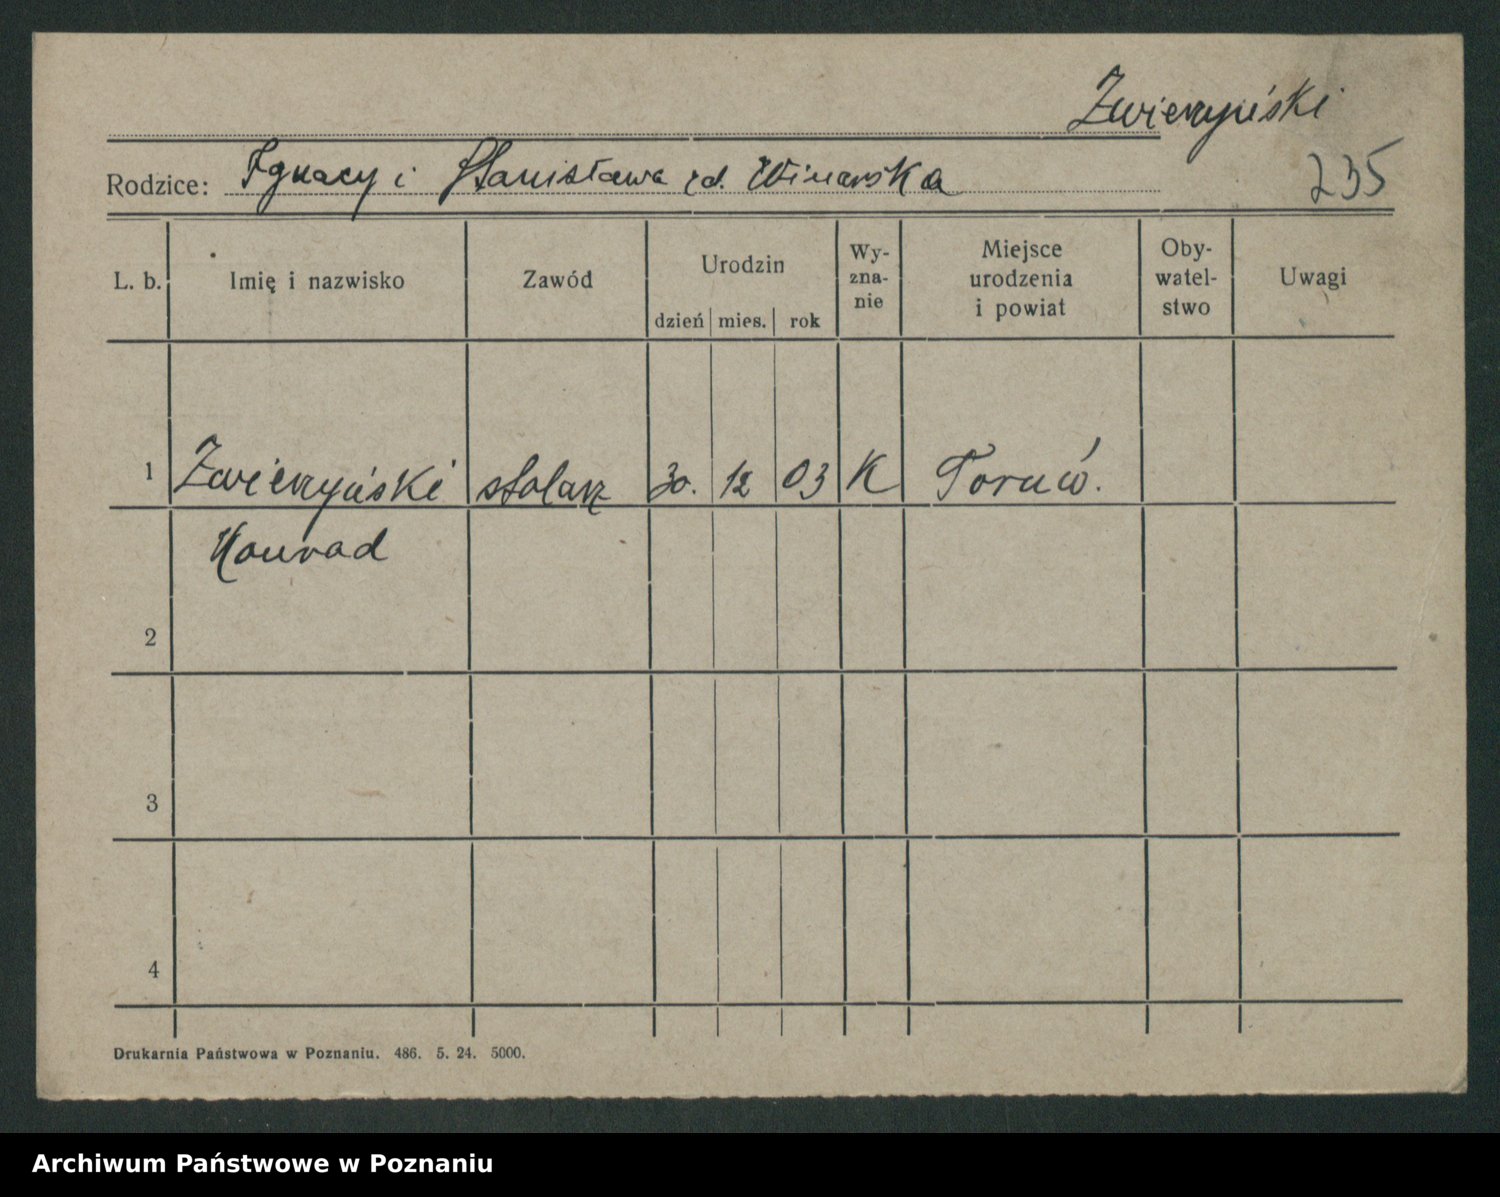 Zwierzyński
Rodzice: Ignacy i Stanisława zd. Winarska
235
L. b. Imię i nazwisko Zawód Urodzin dzień mies. rok Wy-zna-nie Miejsce urodzenia i powiat Oby-watel-stwo Uwagi
1 Zwierzyński stolarz 30. 12 03 K Toruń.
Konrad
2
3
4
Drukarnia Państwowa w Poznaniu. 486. 5. 24. 5000.
Archiwum Państwowe w Poznaniu